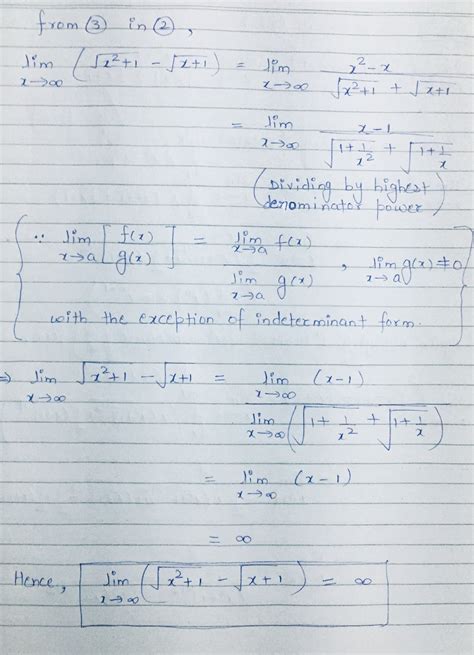 from ③ in ②,
lim x→∞ (√(x²+1) - √(x+1)) = lim x→∞ (x²-x)/(√(x²+1) + √(x+1))
= lim x→∞ (x-1)/(√(1+1/x²) + √(1+1/x))
(Dividing by highest
denominator power)
{∵ lim x→a [f(x)/g(x)] = lim x→a f(x) / lim x→a g(x) , lim x→a g(x) ≠ 0
with the exception of indeterminant form}
⇒ lim x→∞ √(x²+1) - √(x+1) = lim x→∞ (x-1) / lim x→∞ (√(1+1/x²) + √(1+1/x))
= lim x→∞ (x-1)
= ∞
Hence, lim x→∞ (√(x²+1) - √(x+1)) = ∞